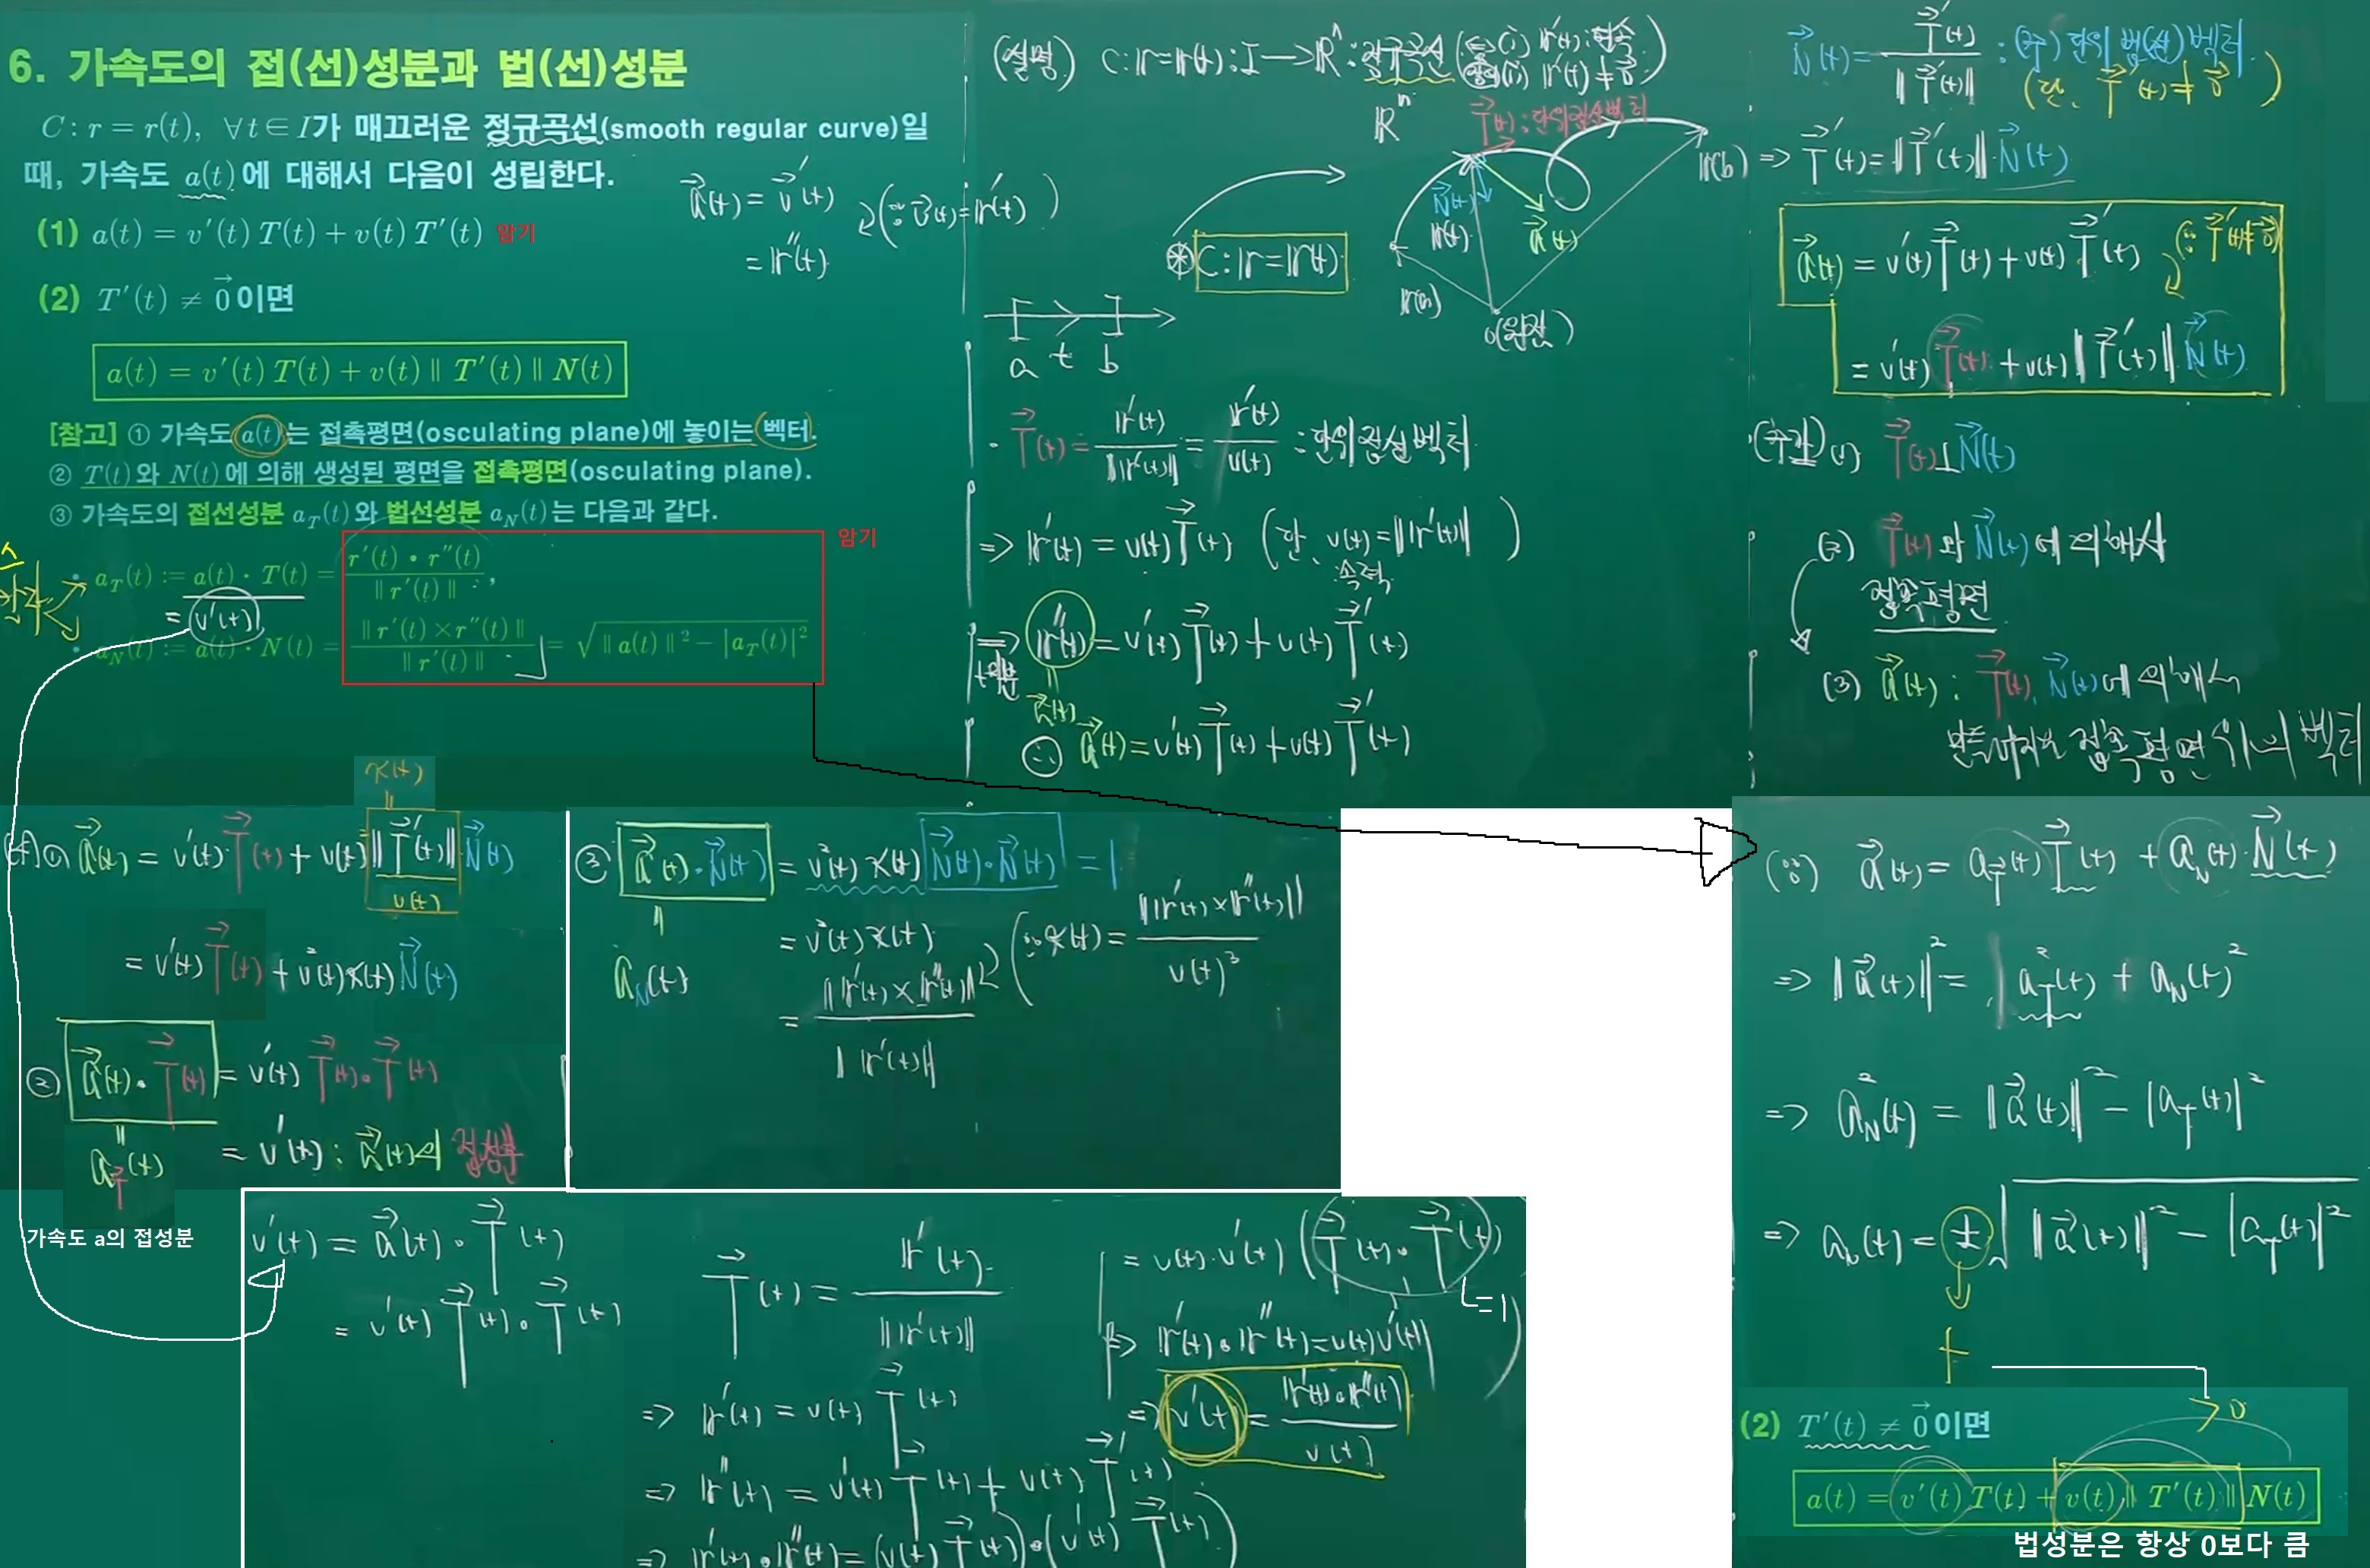 6. 가속도의 접(선)성분과 법(선)성분
C : r = r(t), ∀t∈I가 매끄러운 정규곡선(smooth regular curve)일
때, 가속도 a(t)에 대해서 다음이 성립한다.
(1) a(t) = v′(t) T(t) + v(t) T′(t) 암기
(2) T′(t) ≠ 0⃗ 이면
a(t) = v′(t) T(t) + v(t) ‖ T′(t) ‖ N(t)
[참고] ① 가속도 a(t)는 접촉평면(osculating plane)에 놓이는 벡터.
② T(t)와 N(t)에 의해 생성된 평면을 접촉평면(osculating plane).
③ 가속도의 접선성분 a_T(t)와 법선성분 a_N(t)는 다음과 같다.
a_T(t) := a(t) · T(t) = r′(t) • r″(t) / ‖ r′(t) ‖ , 암기
= v′(t)
a_N(t) := a(t) · N(t) = ‖ r′(t) × r″(t) ‖ / ‖ r′(t) ‖ = √(‖ a(t) ‖² − |a_T(t)|²)
a⃗(t) = v⃗′(t) (∵ v⃗(t) = r′(t))
= r″(t)
(설명) C : r = r(t) : I → Rⁿ : 정규곡선
Rⁿ
T⃗(t) : 단위접선벡터
r(b)
N⃗(t)
r(t)
a⃗(t)
⊛ C : r = r(t)
r(a)
0(원점)
a t b
· T⃗(t) = r′(t) / ‖r′(t)‖ = r′(t) / v(t) : 단위접선벡터
⇒ r′(t) = v(t) T⃗(t) (단, v(t) = ‖r′(t)‖)
: 속력
⇒ r″(t) = v′(t) T⃗(t) + v(t) T⃗′(t)
t미분
a⃗(t)
∴ a⃗(t) = v′(t) T⃗(t) + v(t) T⃗′(t)
N⃗(t) = T⃗′(t) / ‖T⃗′(t)‖ : (주) 단위 법(선)벡터
(단, T⃗′(t) ≠ 0⃗)
⇒ T⃗′(t) = ‖T⃗′(t)‖ N⃗(t)
a⃗(t) = v′(t) T⃗(t) + v(t) T⃗′(t) (∵ T⃗′(t) ≠ 0⃗)
= v′(t) T⃗(t) + v(t) ‖T⃗′(t)‖ N⃗(t)
(1) T⃗(t) ⊥ N⃗(t)
(2) T⃗(t)와 N⃗(t)에 의해서
접촉평면
(3) a⃗(t) : T⃗(t), N⃗(t)에 의해서
만들어지는 접촉평면 위의 벡터
κ(t)
(cf) ① a⃗(t) = v′(t) T⃗(t) + v(t) ‖T⃗′(t)‖ N⃗(t)
v(t)
= v′(t) T⃗(t) + v²(t) κ(t) N⃗(t)
② a⃗(t) · T⃗(t) = v′(t) T⃗(t) · T⃗(t)
a_T(t) = v′(t) : a⃗(t)의 접성분
가속도 a의 접성분
③ a⃗(t) · N⃗(t) = v²(t) κ(t) N⃗(t) · N⃗(t) = 1
a_N(t) = v²(t) κ(t) (∵ κ(t) = ‖r′(t) × r″(t)‖ / v(t)³
= ‖r′(t) × r″(t)‖ / ‖r′(t)‖
v′(t) = a⃗(t) · T⃗(t)
= v′(t) T⃗(t) · T⃗(t)
T⃗(t) = r′(t) / ‖r′(t)‖
⇒ r′(t) = v(t) T⃗(t)
⇒ r″(t) = v′(t) T⃗(t) + v(t) T⃗′(t)
⇒ r′(t) · r″(t) = (v(t) T⃗(t)) · (v′(t) T⃗(t))
= v(t) · v′(t) (T⃗(t) · T⃗(t))
= 1
⇒ r′(t) · r″(t) = v(t) v′(t)
⇒ v′(t) = r′(t) · r″(t) / v(t)
(∵) a⃗(t) = a_T(t) T⃗(t) + a_N(t) · N⃗(t)
⇒ ‖a⃗(t)‖² = a_T²(t) + a_N(t)²
⇒ a_N²(t) = ‖a⃗(t)‖² − |a_T(t)|²
⇒ a_N(t) = ± √(‖a⃗(t)‖² − |a_T(t)|²)
+
> 0
(2) T′(t) ≠ 0⃗ 이면
a(t) = v′(t) T(t) + v(t) ‖ T′(t) ‖ N(t)
법성분은 항상 0보다 큼